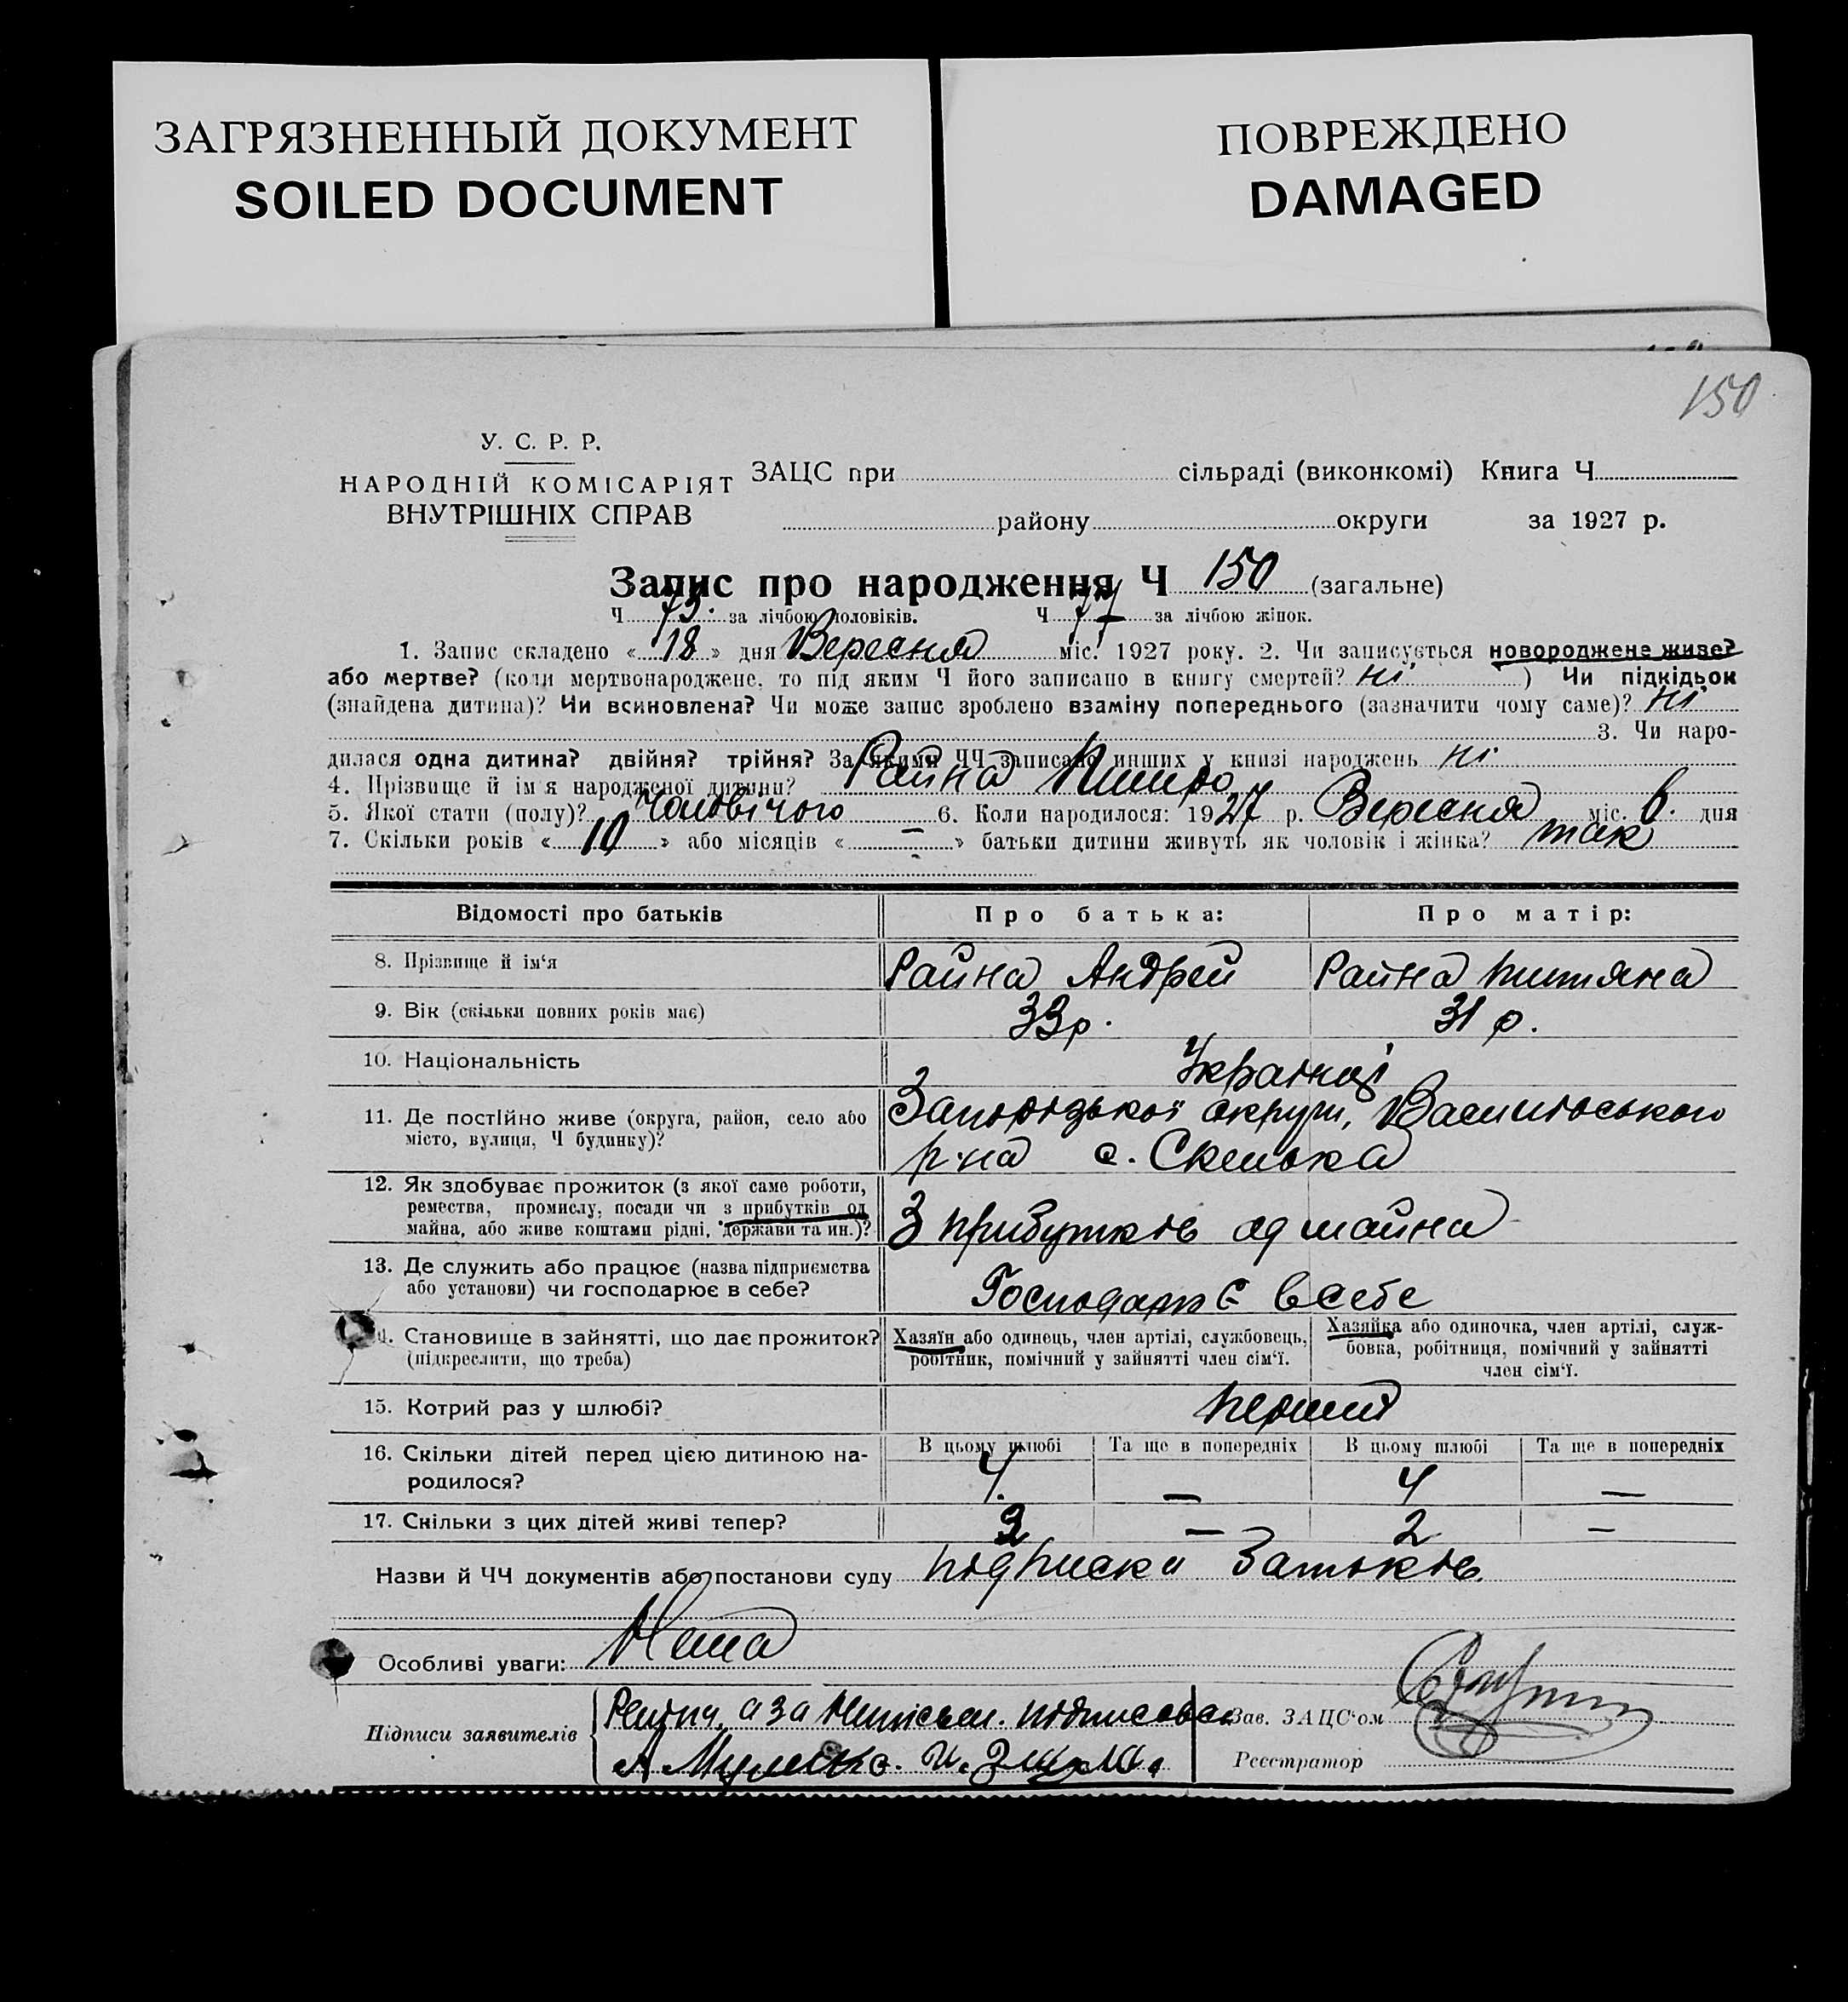 ЗАГРЯЗНЕННЫЙ ДОКУМЕНТ
SOILED DOCUMENT
ПОВРЕЖДЕНО
DAMAGED
150
У. С. Р. Р.
НАРОДНІЙ КОМІСАРІЯТ
ВНУТРІШНІХ СПРАВ
ЗАЦС при сільраді (виконкомі) Книга Ч.
району округи за 1927 р.
Запис про народження Ч 150 (загальне)
Ч 73. за лічбою чоловіків. Ч 77 за лічбою жінок.
1. Запис складено « 18 » дня Вересня міс. 1927 року. 2. Чи записується новороджене живе?
або мертве? (коли мертвонароджене, то під яким Ч його записано в книгу смертей? ні ) Чи підкідьок
(знайдена дитина)? Чи всиновлена? Чи може запис зроблено взаміну попереднього (зазначити чому саме)? ні
3. Чи наро-
дилася одна дитина? двійня? трійня? За якими ЧЧ записано инших у книзі народжень ні
4. Прізвище й ім'я народженої дитини? Райна
5. Якої стати (полу)? Чоловічого 6. Коли народилося: 1927 р. Вересня міс. 6. дня
7. Скільки років « 10 » або місяців « — » батьки дитини живуть як чоловік і жінка? так
Відомості про батьків
Про батька:
Про матір:
8. Прізвище й ім'я
Райна Андрей
Райна
9. Вік (скільки повних років має)
33 р.
31 р.
10. Національність
Українці
11. Де постійно живе (округа, район, село або
місто, вулиця, Ч будинку)?
Запорізької округи,
р-на с. Скелька
12. Як здобуває прожиток (з якої саме роботи,
ремества, промислу, посади чи з прибутків од
майна, або живе коштами рідні, держави та ин.)?
З прибутків од майна
13. Де служить або працює (назва підприємства
або установи) чи господарює в себе?
Господарює в себе
14. Становище в зайнятті, що дає прожиток?
(підкреслити, що треба)
Хазяїн або одинець, член артілі, службовець,
робітник, помічний у зайнятті член сім'ї.
Хазяйка або одиночка, член артілі, служ-
бовка, робітниця, помічний у зайнятті
член сім'ї.
15. Котрий раз у шлюбі?
перший
16. Скільки дітей перед цією дитиною на-
родилося?
В цьому шлюбі
Та ще в попередніх
В цьому шлюбі
Та ще в попередніх
4.
—
4
—
17. Скільки з цих дітей живі тепер?
2
—
2
—
Назви й ЧЧ документів або постанови суду підписки
Особливі уваги: Нема
Підписи заявителів
Зав. ЗАЦС'ом
Реєстратор